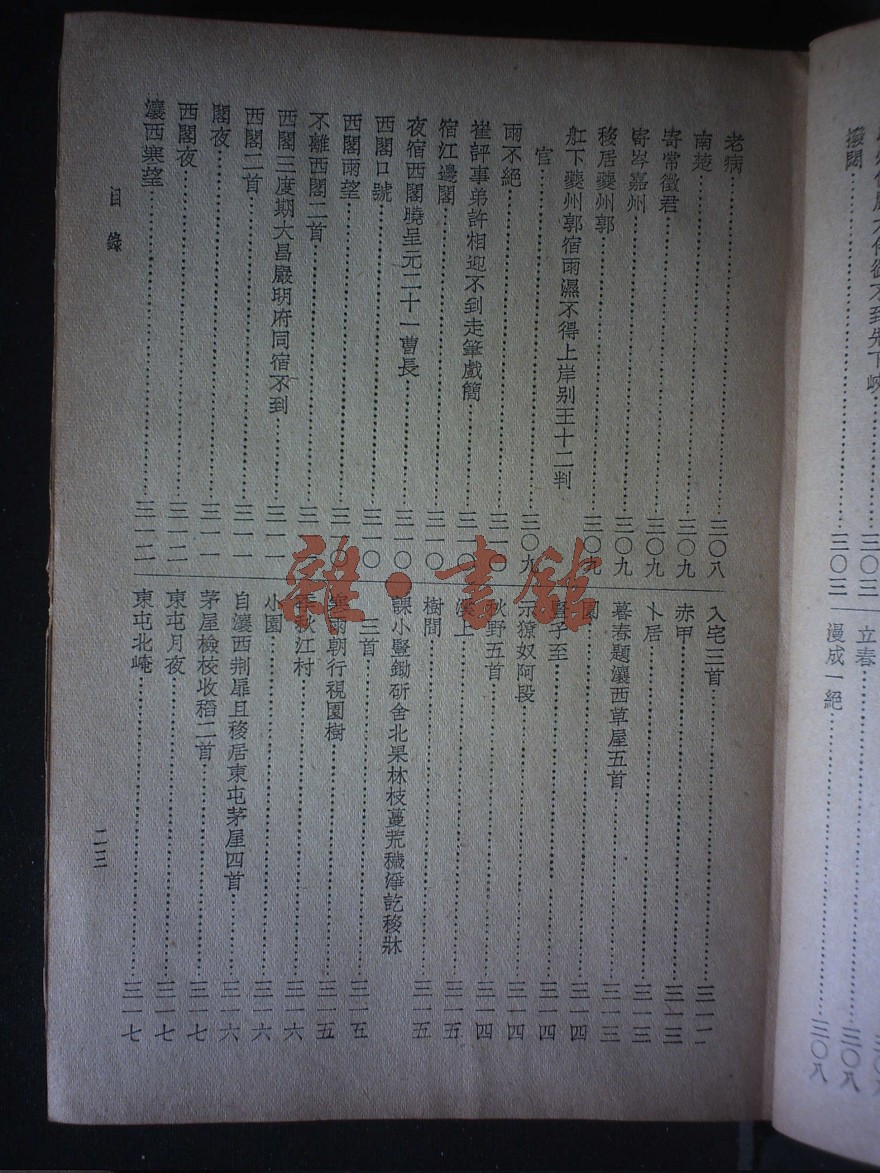 老病……三〇八
南楚……三〇九
寄常徵君……三〇九
寄岑嘉州……三〇九
移居夔州郭……三〇九
舡下夔州郭宿雨濕不得上岸别王十二判
官……三〇九
雨不絕……三一〇
崔評事弟許相迎不到走筆戲簡……三一〇
宿江邊閣……三一〇
夜宿西閣曉呈元二十一曹長……三一〇
西閣口號……三一〇
西閣雨望……三一〇
不離西閣二首……三一一
西閣三度期大昌嚴明府同宿不到……三一一
西閣二首……三一一
閣夜……三一一
西閣夜……三一二
瀼西寒望……三一二
入宅三首……三一二
赤甲……三一三
卜居……三一三
暮春題瀼西草屋五首……三一三
園……三一四
豎子至……三一四
示獠奴阿段……三一四
秋野五首……三一四
溪上……三一五
樹間……三一五
課小豎鋤斫舍北果林枝蔓荒穢淨訖移牀
三首……三一五
寒雨朝行視園樹……三一五
季秋江村……三一六
小園……三一六
自瀼西荆扉且移居東屯茅屋四首……三一六
茅屋檢校收稻二首……三一七
東屯月夜……三一七
東屯北崦……三一七
目錄
二三
雜·書館
撥悶……三〇三
三〇三
立春……三〇八
漫成一絕……三〇八